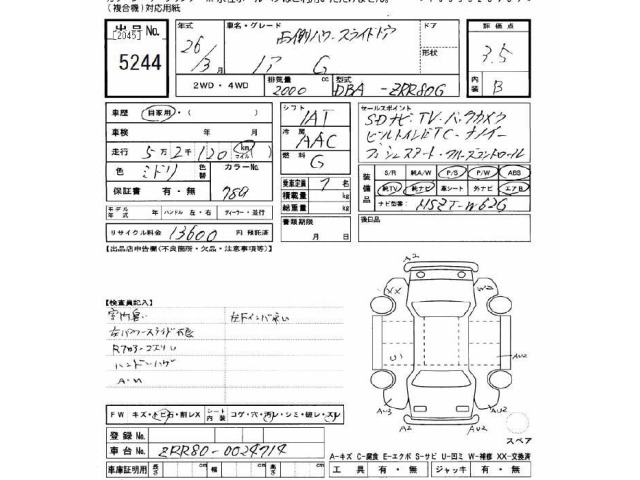 (複合機)対応用紙
出品No. 年式 車名・グレード ドア 評価点
[2045] 26/3月 両側パワースライドドア 形状 3.5
5244 ノア G 内装 B
2WD・4WD 排気量 2000 cc 型式 DBA-ZRR80G
車歴 自家用・( ) シフト IAT セールスポイント
車検 年 月 冷房 AAC SDナビ・TV・バックカメラ
走行 5万2千100 km マイル 燃料 G ビルトインETC・ナノイー
色 ミドリ 色替 カラーNo. 乗車定員 7名 プッシュスタート・クルーズコントロール
保証書 有・無 789 積載量 kg 装備品 S/R 純A/W P/S P/W ABS
モデル年式 年 ハンドル 左・右 ディーラー・並行 総重量 kg 純TV 純ナビ 革シート 外ナビ エアB
リサイクル料金 13600 円 預託済 書類期限 月 日 ナビ型番 NSZT-W62G
【出品店申告欄(不良箇所・欠品・注意事項等)】 後日品
【検査員記入】
室内臭い 左下インパネ
ハンドルハゲ
A・U
FW キズ・トビ石・割レX シート内装 コゲ・穴・汚レ・シミ・破レ・スレ
登録No.
車台No. ZRR80-0024714
車庫証明用 長さ cm 幅 cm 高さ cm
A2
XX
A2
U
AU2
A2
スペア
A-キズ C-腐食 E-エクボ S-サビ U-凹ミ W-補修 XX-交換済
工具 有・無 ジャッキ 有・無